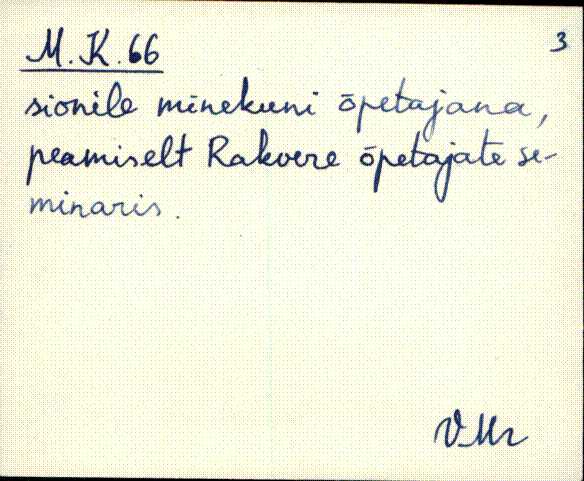 M.K.66
3
sionile minekuni õpetajana,
peamiselt Rakvere õpetajate se-
minaris.